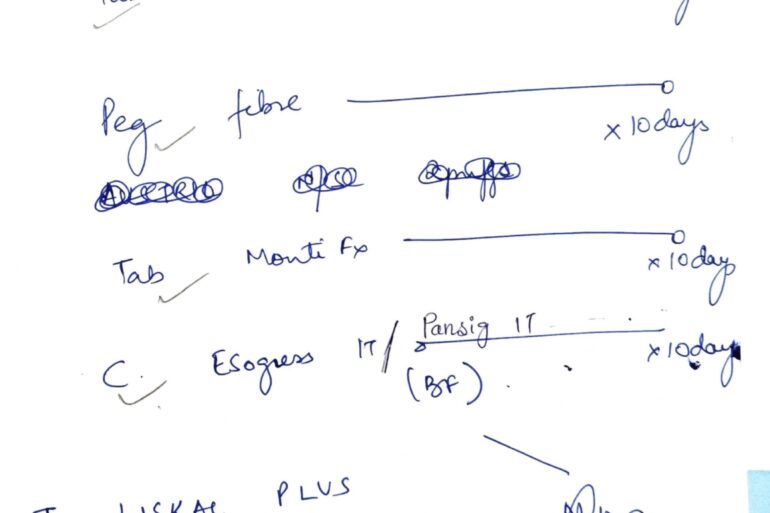 Peg fibre
x 10 days
Tab Monti Fx
x 10 day
C. Esogress IT / Pansig IT
x 10 day
(BF)
PLUS